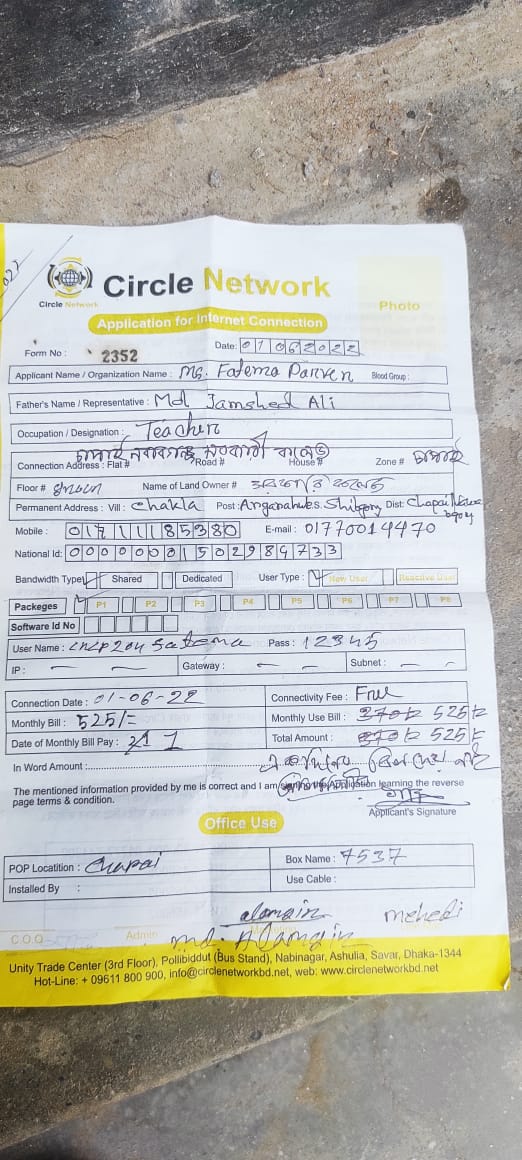 Circle Network
Circle Network
Photo
Application for Internet Connection
Form No : 2352
Date: 01062022
Applicant Name / Organization Name : Ms. Fatema Parven Blood Group :
Father's Name / Representative : Md Jamshed Ali
Occupation / Designation : Teacher
চাঁপাই নবাবগঞ্জ সরকারী কলেজ
Connection Address : Flat # Road # House # Zone # চাঁপাই
Floor # Name of Land Owner #
Permanent Address : Vill : Chakla Post : Dist: Chapai
Mobile : 01711185380 E-mail : 01770014470
National Id: 0000001502984733
Bandwidth Type Shared Dedicated User Type : New User Reactive User
Packeges P1 P2 P3 P4 P5 P6 P7 P8
Software Id No
User Name : Pass : 12345
IP : — — Gateway : — — Subnet : — —
Connection Date : 01-06-22 Connectivity Fee : Free
Monthly Bill : 525/= Monthly Use Bill : 525
Date of Monthly Bill Pay : 1 Total Amount : 525
In Word Amount :
The mentioned information provided by me is correct and I am learning the reverse
page terms & condition.
Applicant's Signature
Office Use
POP Locatition : Chapai Box Name : 7537
Installed By : Use Cable :
alamgin mehedi
C.O.O Admin
md. Alamgin
Unity Trade Center (3rd Floor), Pollibiddut (Bus Stand), Nabinagar, Ashulia, Savar, Dhaka-1344
Hot-Line: + 09611 800 900, info@circlenetworkbd.net, web: www.circlenetworkbd.net